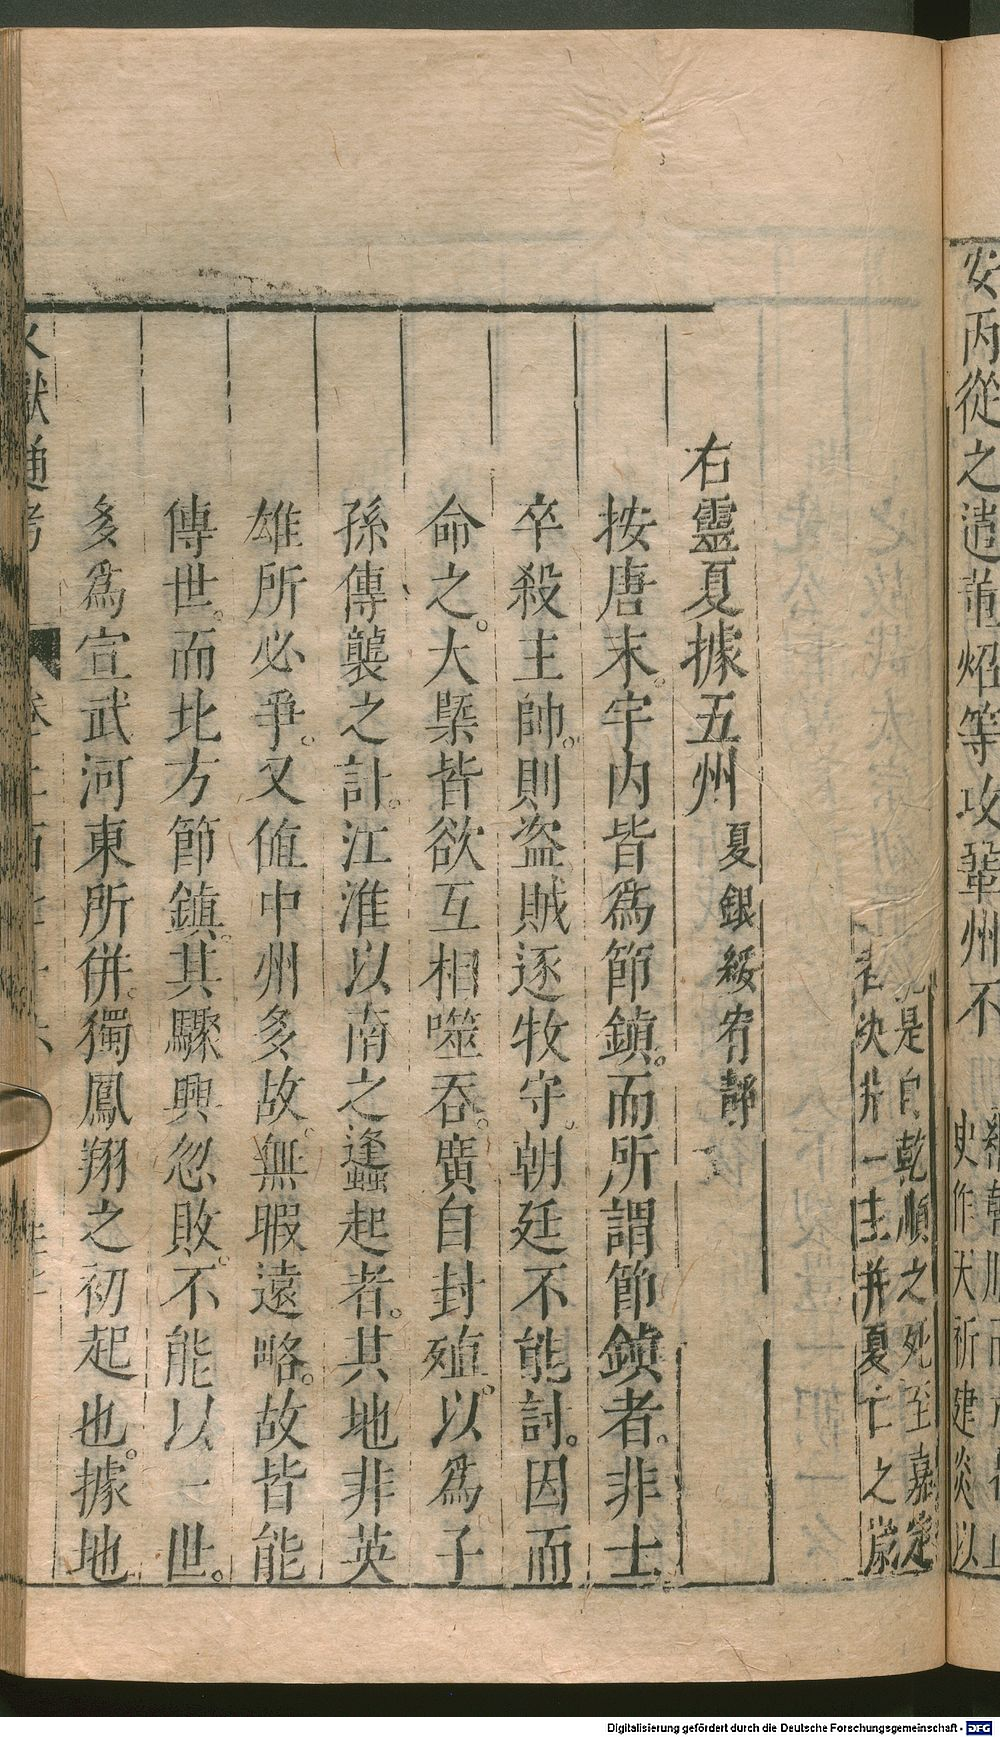 安丙從之遣董炤等攻鞏州不
史作大祈建炎以
是自乾順之死至嘉定
一主并夏亡之歲
右靈夏據五州
夏銀綏宥靜
按唐末宇内皆爲節鎮而所謂節鎮者非士
卒殺主帥則盗賊逐牧守朝廷不能討因而
命之大槩皆欲互相噬吞廣自封殖以爲子
孫傳襲之計江淮以南之蠭起者其地非英
雄所必爭又值中州多故無暇遠略故皆能
傳世而北方節鎮其驟興忽敗不能以一世
多爲宣武河東所併獨鳳翔之初起也據地
文獻通考
Digitalisierung gefördert durch die Deutsche Forschungsgemeinschaft - DFG